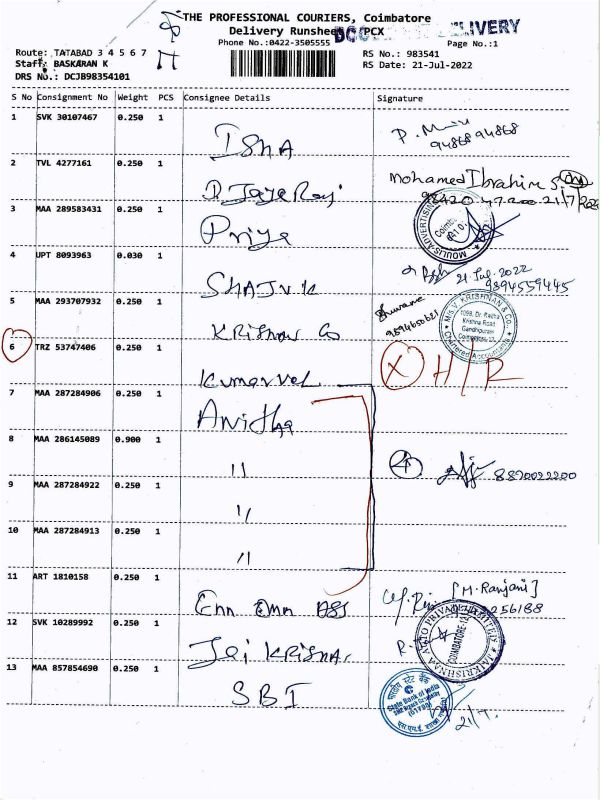 THE PROFESSIONAL COURIERS, Coimbatore
Delivery Runsheet PCX
DELIVERY
Phone No.:0422-3505555 Page No.:1
Route: TATABAD 3 4 5 6 7 RS No.: 983541
Staff: BASKARAN K RS Date: 21-Jul-2022
DRS No.: DCJB98354101
S No Consignment No Weight PCS Consignee Details Signature
1 SVK 30107467 0.250 1 ISHA
94868 94868
2 TVL 4277161 0.250 1 Mohamed Ibrahim S
3 MAA 289583431 0.250 1 Priya
4 UPT 8093963 0.030 1 21-Jul-2022
9894559445
5 MAA 293707932 0.250 1 KRISHNAN Co
M/s. V. KRISHNAN & Co.,
1098, Dr. Radha
Krishna Road
Gandhipuram
Chartered Accountants
6 TRZ 53747406 0.250 1 Kumarvel X H/R
7 MAA 287284906 0.250 1 Anitha
8 MAA 286145089 0.900 1 "
4 8870022200
9 MAA 287284922 0.250 1 "
10 MAA 287284913 0.250 1 "
11 ART 1810158 0.250 1 [M.Ranjani]
12 SVK 10289992 0.250 1 Jai KRISHNA
13 MAA 857854690 0.250 1 SBI
भारतीय स्टेट बैंक
State Bank of India
21/7